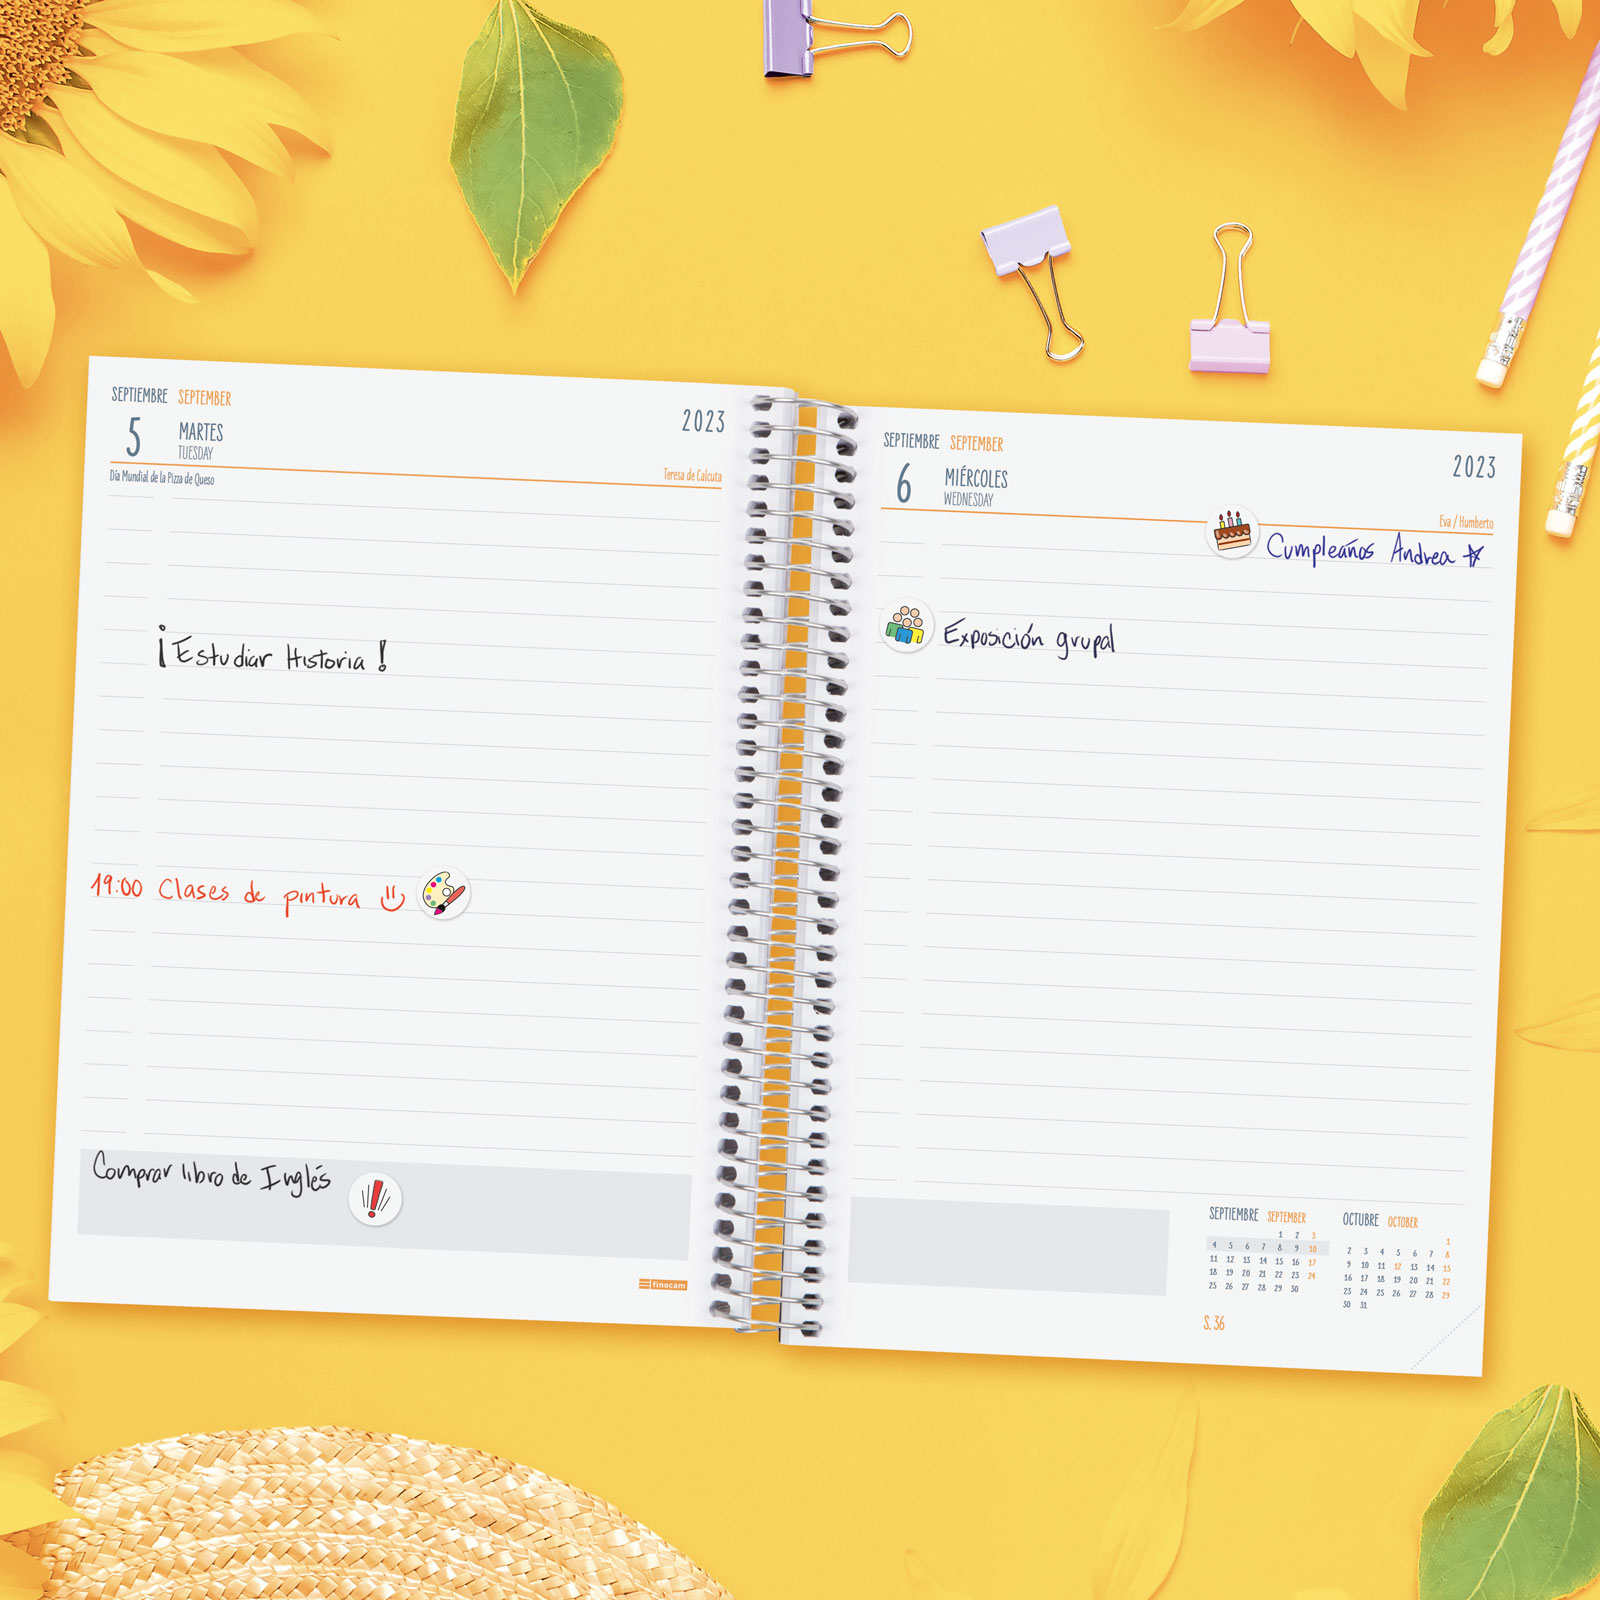 SEPTIEMBRE SEPTEMBER
5 MARTES 2023
TUESDAY
Día Mundial de la Pizza de Queso Teresa de Calcuta
¡Estudiar Historia!
19:00 Clases de pintura
Comprar libro de Inglés
finocam
SEPTIEMBRE SEPTEMBER
6 MIÉRCOLES 2023
WEDNESDAY
Eva / Humberto
Cumpleaños Andrea
Exposición grupal
SEPTIEMBRE SEPTEMBER
1 2 3
4 5 6 7 8 9 10
11 12 13 14 15 16 17
18 19 20 21 22 23 24
25 26 27 28 29 30
OCTUBRE OCTOBER
1
2 3 4 5 6 7 8
9 10 11 12 13 14 15
16 17 18 19 20 21 22
23 24 25 26 27 28 29
30 31
S. 36